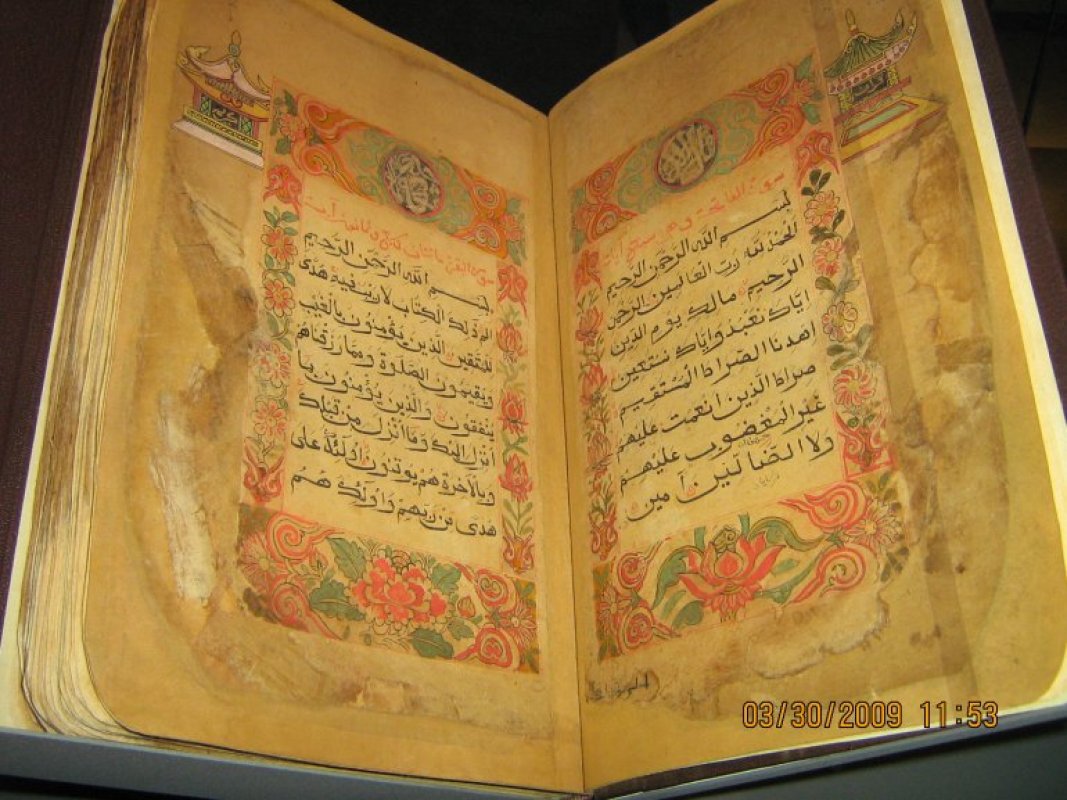 سورة الفاتحة وهي سبع آيات
بسم الله الرحمن الرحيم
الحمد لله رب العالمين الرحمن
الرحيم مالك يوم الدين
اياك نعبد واياك نستعين
اهدنا الصراط المستقيم
صراط الذين انعمت عليهم
غير المغضوب عليهم
ولا الضالين آمين
سورة البقرة مائتان وست وثمانون آيت
بسم الله الرحمن الرحيم
الم ذلك الكتاب لا ريب فيه هدى
للمتقين الذين يؤمنون بالغيب
ويقيمون الصلوة ومما رزقناهم
ينفقون والذين يؤمنون بما
أنزل اليك وما أنزل من قبلك
وبالآخرة هم يوقنون أولئك على
هدى من ربهم وأولئك هم
03/30/2009 11:53